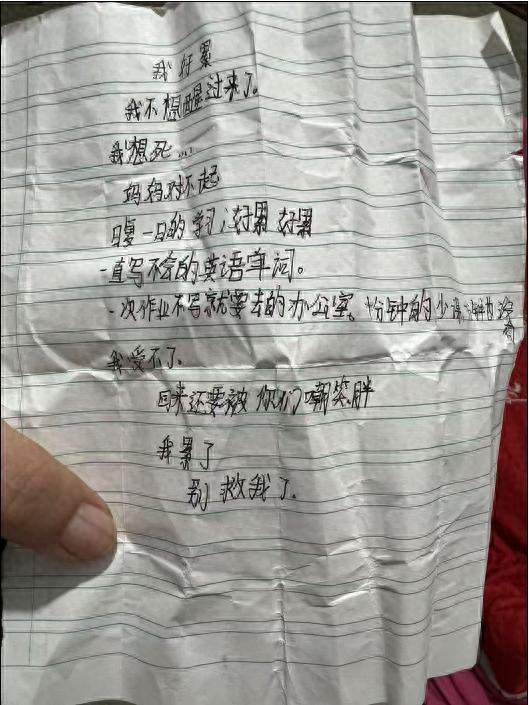 我好累
我不想醒过来了。
我想死...
妈妈对不起
日复一日的学习，好累 好累
一直写不会的英语单词。
一次作业不写就要去的办公室。十分钟的少说
我受不了.
回来还要被你们嘲笑胖
我累了
别救我了.